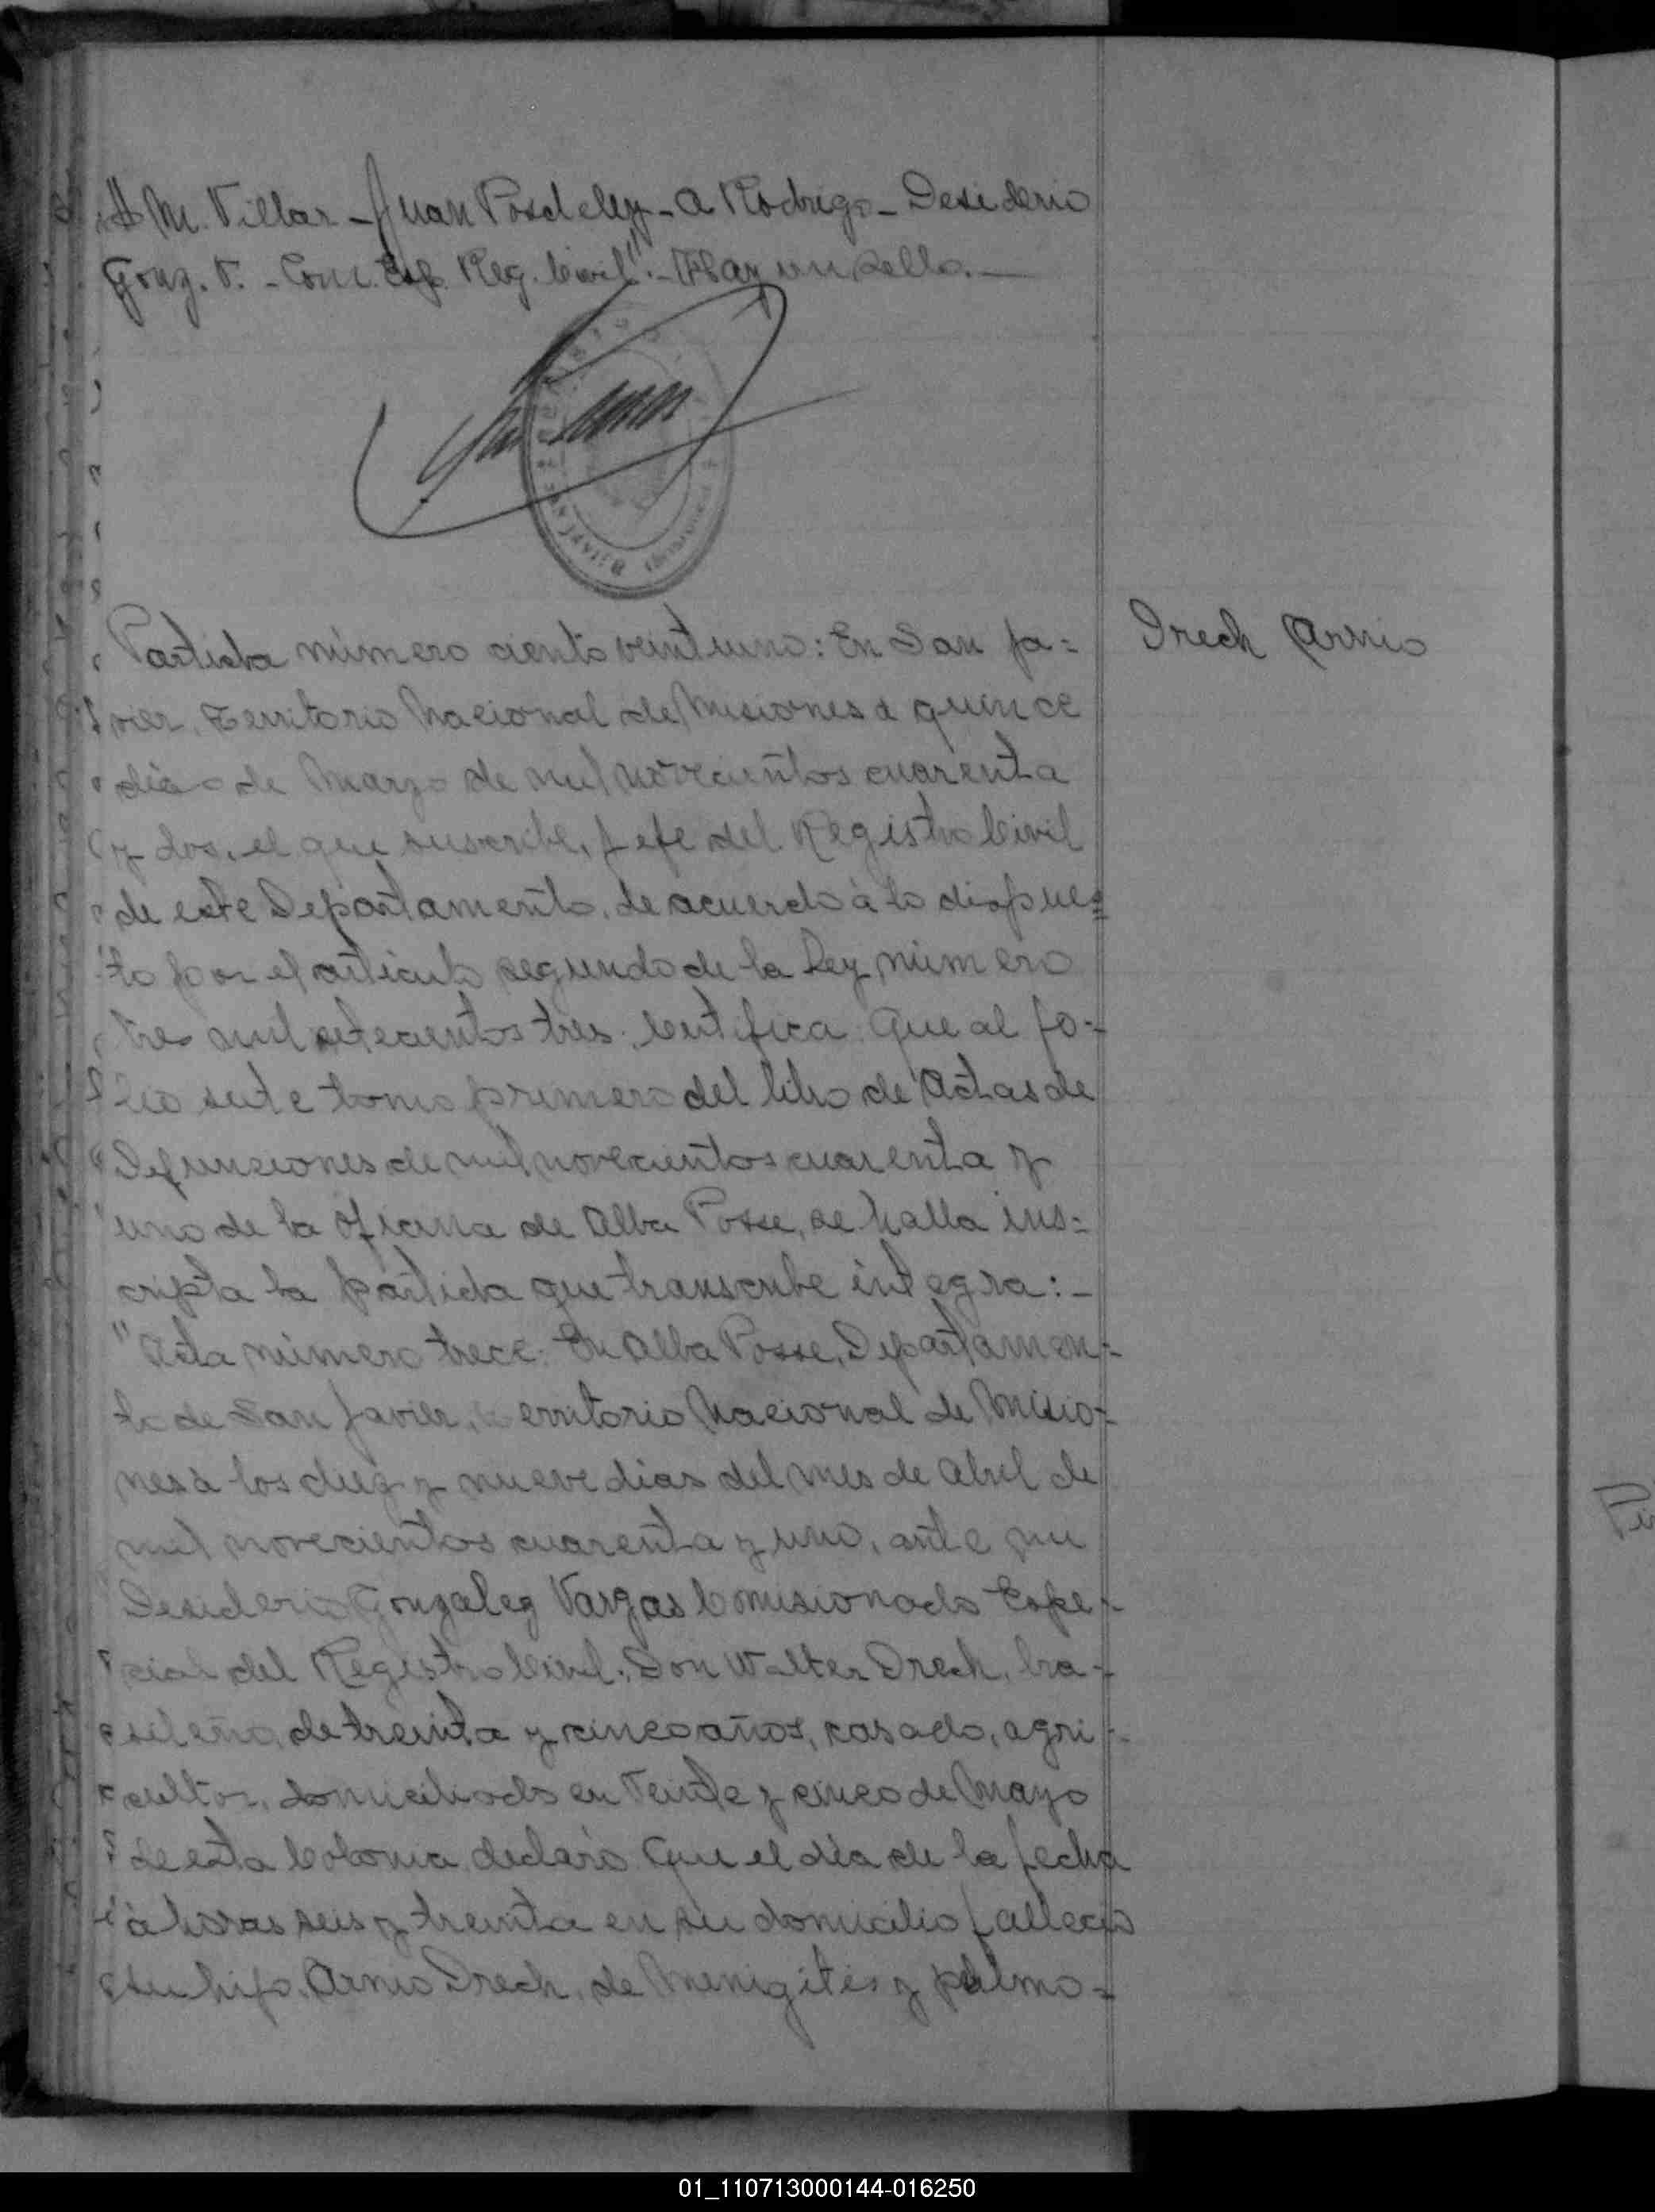 A M. Villar - Juan Posdeley - A Rodrigo - Desiderio
Gonz. V. - Com. Esp. Reg. Civil". - Hay un sello. -
SAN JAVIER (Misiones)
Partida número ciento veintiuno: En San Ja=
vier, Territorio Nacional de Misiones a quince
días de Marzo de mil novecientos cuarenta
y dos, el que suscribe, Jefe del Registro Civil
de este Departamento, de acuerdo à lo dispues=
to por el artículo segundo de la Ley número
tres mil setecientos tres. Certifica: Que al fo=
lio siete tomo primero del libro de Actas de
Defunciones de mil novecientos cuarenta y
uno de la oficina de Alba Posse, se halla ins=
cripta la partida que transcribe integra: -
"Acta número trece: En Alba Posse, Departamen=
to de San Javier, Territorio Nacional de Misio=
nes à los diez y nueve dias del mes de Abril de
mil novecientos cuarenta y uno, ante mi
Desiderio Gonzalez Vargas Comisionado Espe=
cial del Registro Civil; Don Walter Drech, bra=
sileño, de treinta y cinco años, casado, agri=
cultor, domiciliado en Veinte y cinco de Mayo
de esta Colonia, declaró: Que el día de la fecha
à horas seis y treinta en su domicilio falleció
su hijo, Arnio Drech, de Menigites y pulmo=
Drech Arnio
01_110713000144-016250